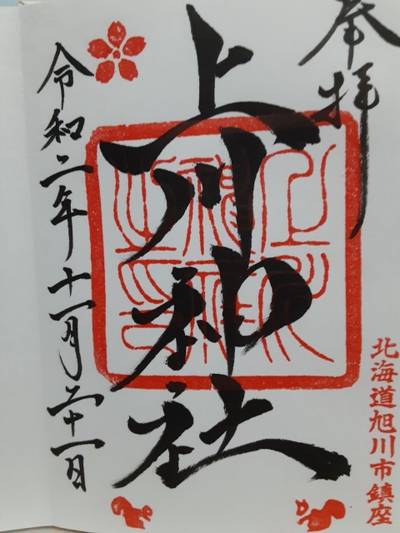 奉拝
上川神社
令和二年十一月二十一日
北海道旭川市鎮座